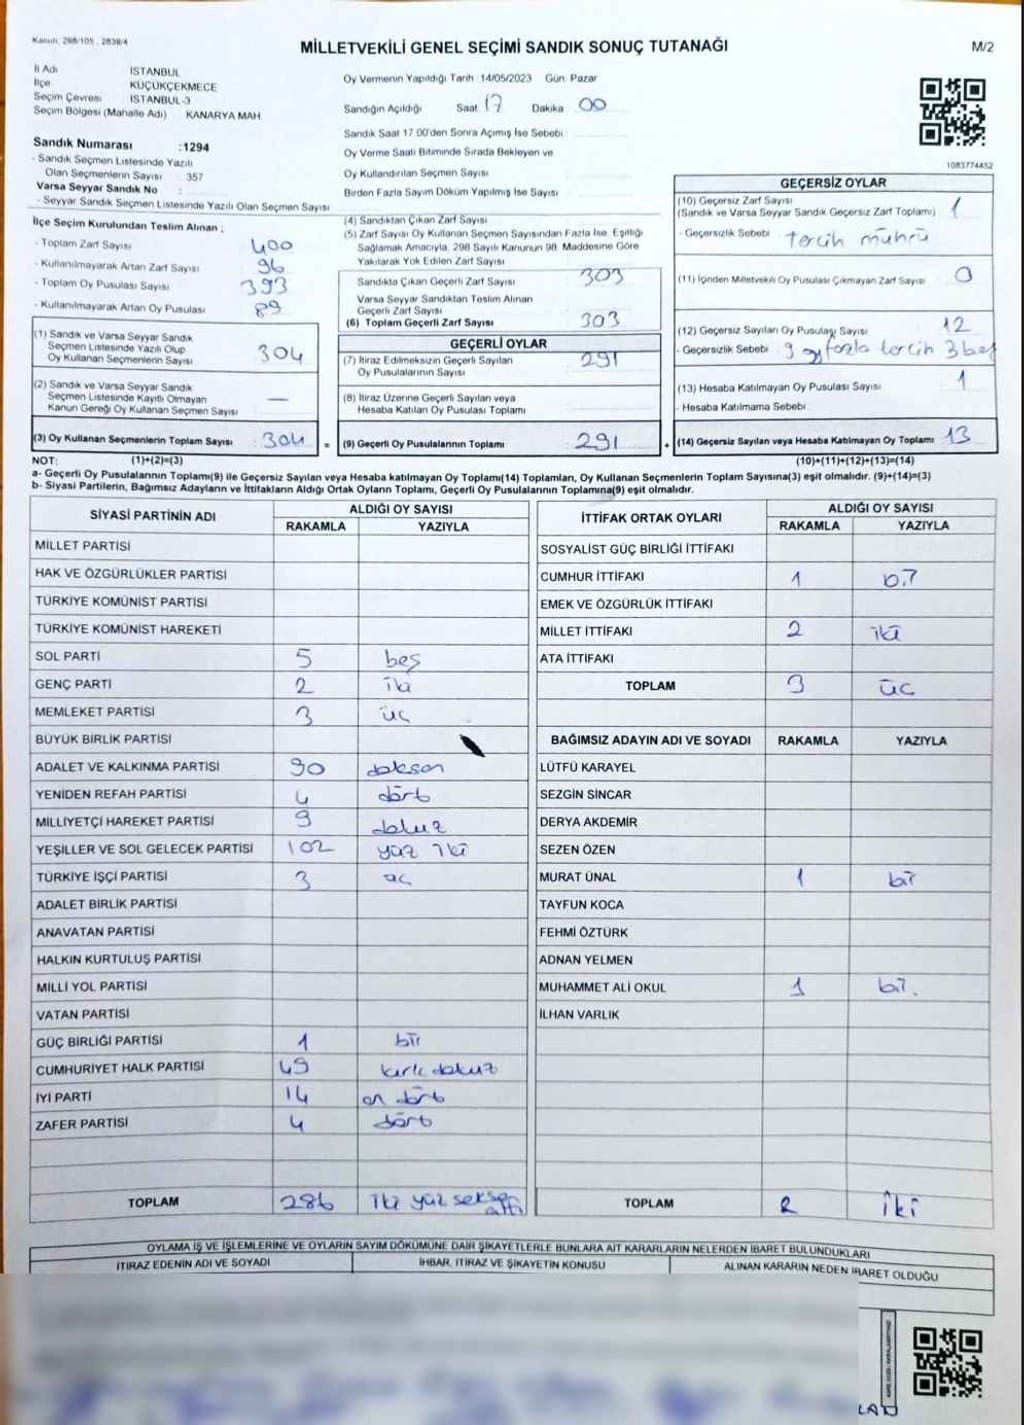 Kanun: 298/105 , 2839/4
MİLLETVEKİLİ GENEL SEÇİMİ SANDIK SONUÇ TUTANAĞI
M/2
İl Adı İSTANBUL
İlçe KÜÇÜKÇEKMECE
Seçim Çevresi İSTANBUL-3
Seçim Bölgesi (Mahalle Adı) KANARYA MAH
Sandık Numarası :1294
- Sandık Seçmen Listesinde Yazılı
Olan Seçmenlerin Sayısı : 357
Varsa Seyyar Sandık No :
- Seyyar Sandık Seçmen Listesinde Yazılı Olan Seçmen Sayısı
Oy Vermenin Yapıldığı Tarih : 14/05/2023 Gün: Pazar
Sandığın Açıldığı Saat 17 Dakika : 00
Sandık Saat 17:00'den Sonra Açımış İse Sebebi :
Oy Verme Saati Bitiminde Sırada Bekleyen ve
Oy Kullandırılan Seçmen Sayısı
Birden Fazla Sayım Döküm Yapılmış İse Sayısı
1083774452
İlçe Seçim Kurulundan Teslim Alınan ;
- Toplam Zarf Sayısı 400
- Kullanılmayarak Artan Zarf Sayısı 96
- Toplam Oy Pusulası Sayısı 393
- Kullanılmayarak Artan Oy Pusulası 89
(1) Sandık ve Varsa Seyyar Sandık
Seçmen Listesinde Yazılı Olup
Oy Kullanan Seçmenlerin Sayısı 304
(2) Sandık ve Varsa Seyyar Sandık
Seçmen Listesinde Kayıtlı Olmayan
Kanun Gereği Oy Kullanan Seçmen Sayısı —
(3) Oy Kullanan Seçmenlerin Toplam Sayısı 304 =
(4) Sandıktan Çıkan Zarf Sayısı
(5) Zarf Sayısı Oy Kullanan Seçmen Sayısından Fazla İse, Eşitliği
Sağlamak Amacıyla, 298 Sayılı Kanunun 98. Maddesine Göre
Yakılarak Yok Edilen Zarf Sayısı
Sandıkta Çıkan Geçerli Zarf Sayısı 303
Varsa Seyyar Sandıktan Teslim Alınan
Geçerli Zarf Sayısı
(6) Toplam Geçerli Zarf Sayısı 303
GEÇERLİ OYLAR
(7) İtiraz Edilmeksizin Geçerli Sayılan
Oy Pusulalarının Sayısı 291
(8) İtiraz Üzerine Geçerli Sayılan veya
Hesaba Katılan Oy Pusulası Toplamı
(9) Geçerli Oy Pusulalarının Toplamı 291 +
GEÇERSİZ OYLAR
(10) Geçersiz Zarf Sayısı
(Sandık ve Varsa Seyyar Sandık Geçersiz Zarf Toplamı) 1
- Geçersizlik Sebebi : tercih mührü
(11) İçinden Milletvekili Oy Pusulası Çıkmayan Zarf Sayısı 0
(12) Geçersiz Sayılan Oy Pusulası Sayısı 12
- Geçersizlik Sebebi : 9 fazla tercih 3
(13) Hesaba Katılmayan Oy Pusulası Sayısı 1
- Hesaba Katılmama Sebebi
(14) Geçersiz Sayılan veya Hesaba Katılmayan Oy Toplamı 13
NOT: (1)+(2)=(3) (10)+(11)+(12)+(13)=(14)
a- Geçerli Oy Pusulalarının Toplamı(9) ile Geçersiz Sayılan veya Hesaba katılmayan Oy Toplamı(14) Toplamları, Oy Kullanan Seçmenlerin Toplam Sayısına(3) eşit olmalıdır. (9)+(14)=(3)
b- Siyasi Partilerin, Bağımsız Adayların ve İttifakların Aldığı Ortak Oyların Toplamı, Geçerli Oy Pusulalarının Toplamına(9) eşit olmalıdır.
SİYASİ PARTİNİN ADI ALDIĞI OY SAYISI
RAKAMLA YAZIYLA
MİLLET PARTİSİ
HAK VE ÖZGÜRLÜKLER PARTİSİ
TÜRKİYE KOMÜNİST PARTİSİ
TÜRKİYE KOMÜNİST HAREKETİ
SOL PARTİ 5 beş
GENÇ PARTİ 2 iki
MEMLEKET PARTİSİ 3 üç
BÜYÜK BİRLİK PARTİSİ
ADALET VE KALKINMA PARTİSİ 90 doksan
YENİDEN REFAH PARTİSİ 4 dört
MİLLİYETÇİ HAREKET PARTİSİ 9 dokuz
YEŞİLLER VE SOL GELECEK PARTİSİ 102 yüz iki
TÜRKİYE İŞÇİ PARTİSİ 3 üç
ADALET BİRLİK PARTİSİ
ANAVATAN PARTİSİ
HALKIN KURTULUŞ PARTİSİ
MİLLİ YOL PARTİSİ
VATAN PARTİSİ
GÜÇ BİRLİĞİ PARTİSİ 1 bir
CUMHURİYET HALK PARTİSİ 49 kırk dokuz
İYİ PARTİ 14 on dört
ZAFER PARTİSİ 4 dört
TOPLAM 286 iki yüz seksen altı
İTTİFAK ORTAK OYLARI ALDIĞI OY SAYISI
RAKAMLA YAZIYLA
SOSYALİST GÜÇ BİRLİĞİ İTTİFAKI
CUMHUR İTTİFAKI 1 bir
EMEK VE ÖZGÜRLÜK İTTİFAKI
MİLLET İTTİFAKI 2 iki
ATA İTTİFAKI
TOPLAM 3 üç
BAĞIMSIZ ADAYIN ADI VE SOYADI RAKAMLA YAZIYLA
LÜTFÜ KARAYEL
SEZGİN SİNCAR
DERYA AKDEMİR
SEZEN ÖZEN
MURAT ÜNAL 1 bir
TAYFUN KOCA
FEHMİ ÖZTÜRK
ADNAN YELMEN
MUHAMMET ALİ OKUL 1 bir.
İLHAN VARLIK
TOPLAM 2 iki
OYLAMA İŞ VE İŞLEMLERİNE VE OYLARIN SAYIM DÖKÜMÜNE DAİR ŞİKAYETLERLE BUNLARA AİT KARARLARIN NELERDEN İBARET BULUNDUKLARI
İTİRAZ EDENİN ADI VE SOYADI İHBAR, İTİRAZ VE ŞİKAYETİN KONUSU ALINAN KARARIN NEDEN İBARET OLDUĞU